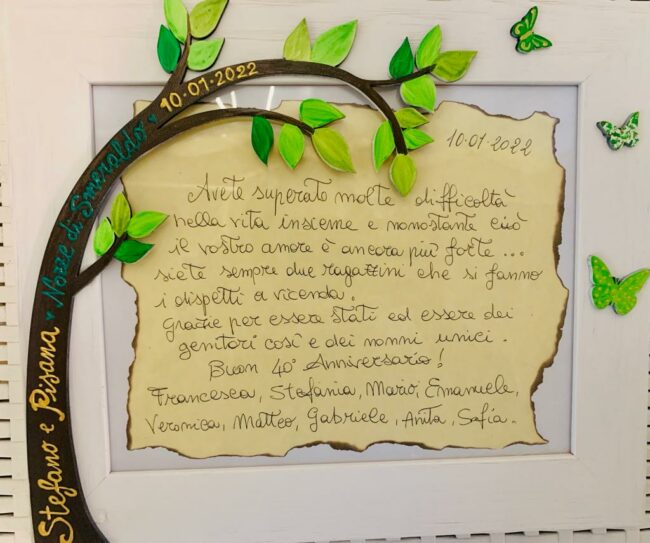 Stefano e Pisana • Nozze di Smeraldo • 10.01.2022
10.01.2022
Avete superato molte difficoltà
nella vita insieme e nonostante ciò
il vostro amore è ancora più forte...
siete sempre due ragazzini che si fanno
i dispetti a vicenda.
Grazie per essere stati ed essere dei
genitori così e dei nonni unici.
Buon 40° Anniversario!
Francesca, Stefania, Mario, Emanuele,
Veronica, Matteo, Gabriele, Anita, Sofia.